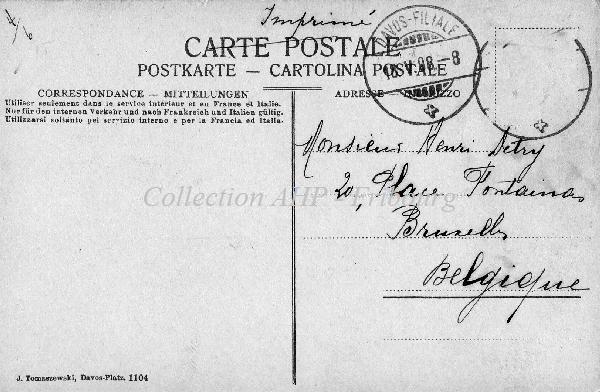 4/6
Imprimé
CARTE POSTALE
POSTKARTE — CARTOLINA POSTALE
DAVOS-FILIALE
CORRESPONDANCE — MITTEILUNGEN
Utiliser seulement dans le service intérieur et en France et Italie.
Nur für den internen Verkehr und nach Frankreich und Italien gültig.
Utilizzarsi soltanto pel servizio interno e per la Francia ed Italia.
ADRESSE —
Monsieur Henri Detry
20, Place Fontainas
Bruxelles
Belgique
Collection AHP - Fribourg
J. Tomaszewski, Davos-Platz. 1104